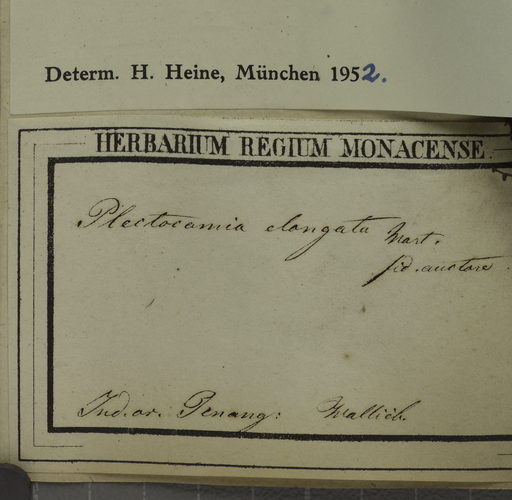 Determ. H. Heine, München 1952.
HERBARIUM REGIUM MONACENSE.
Plectocamia elongata Mart.
fid. auctore.
Ind. or. Penang: Wallich.